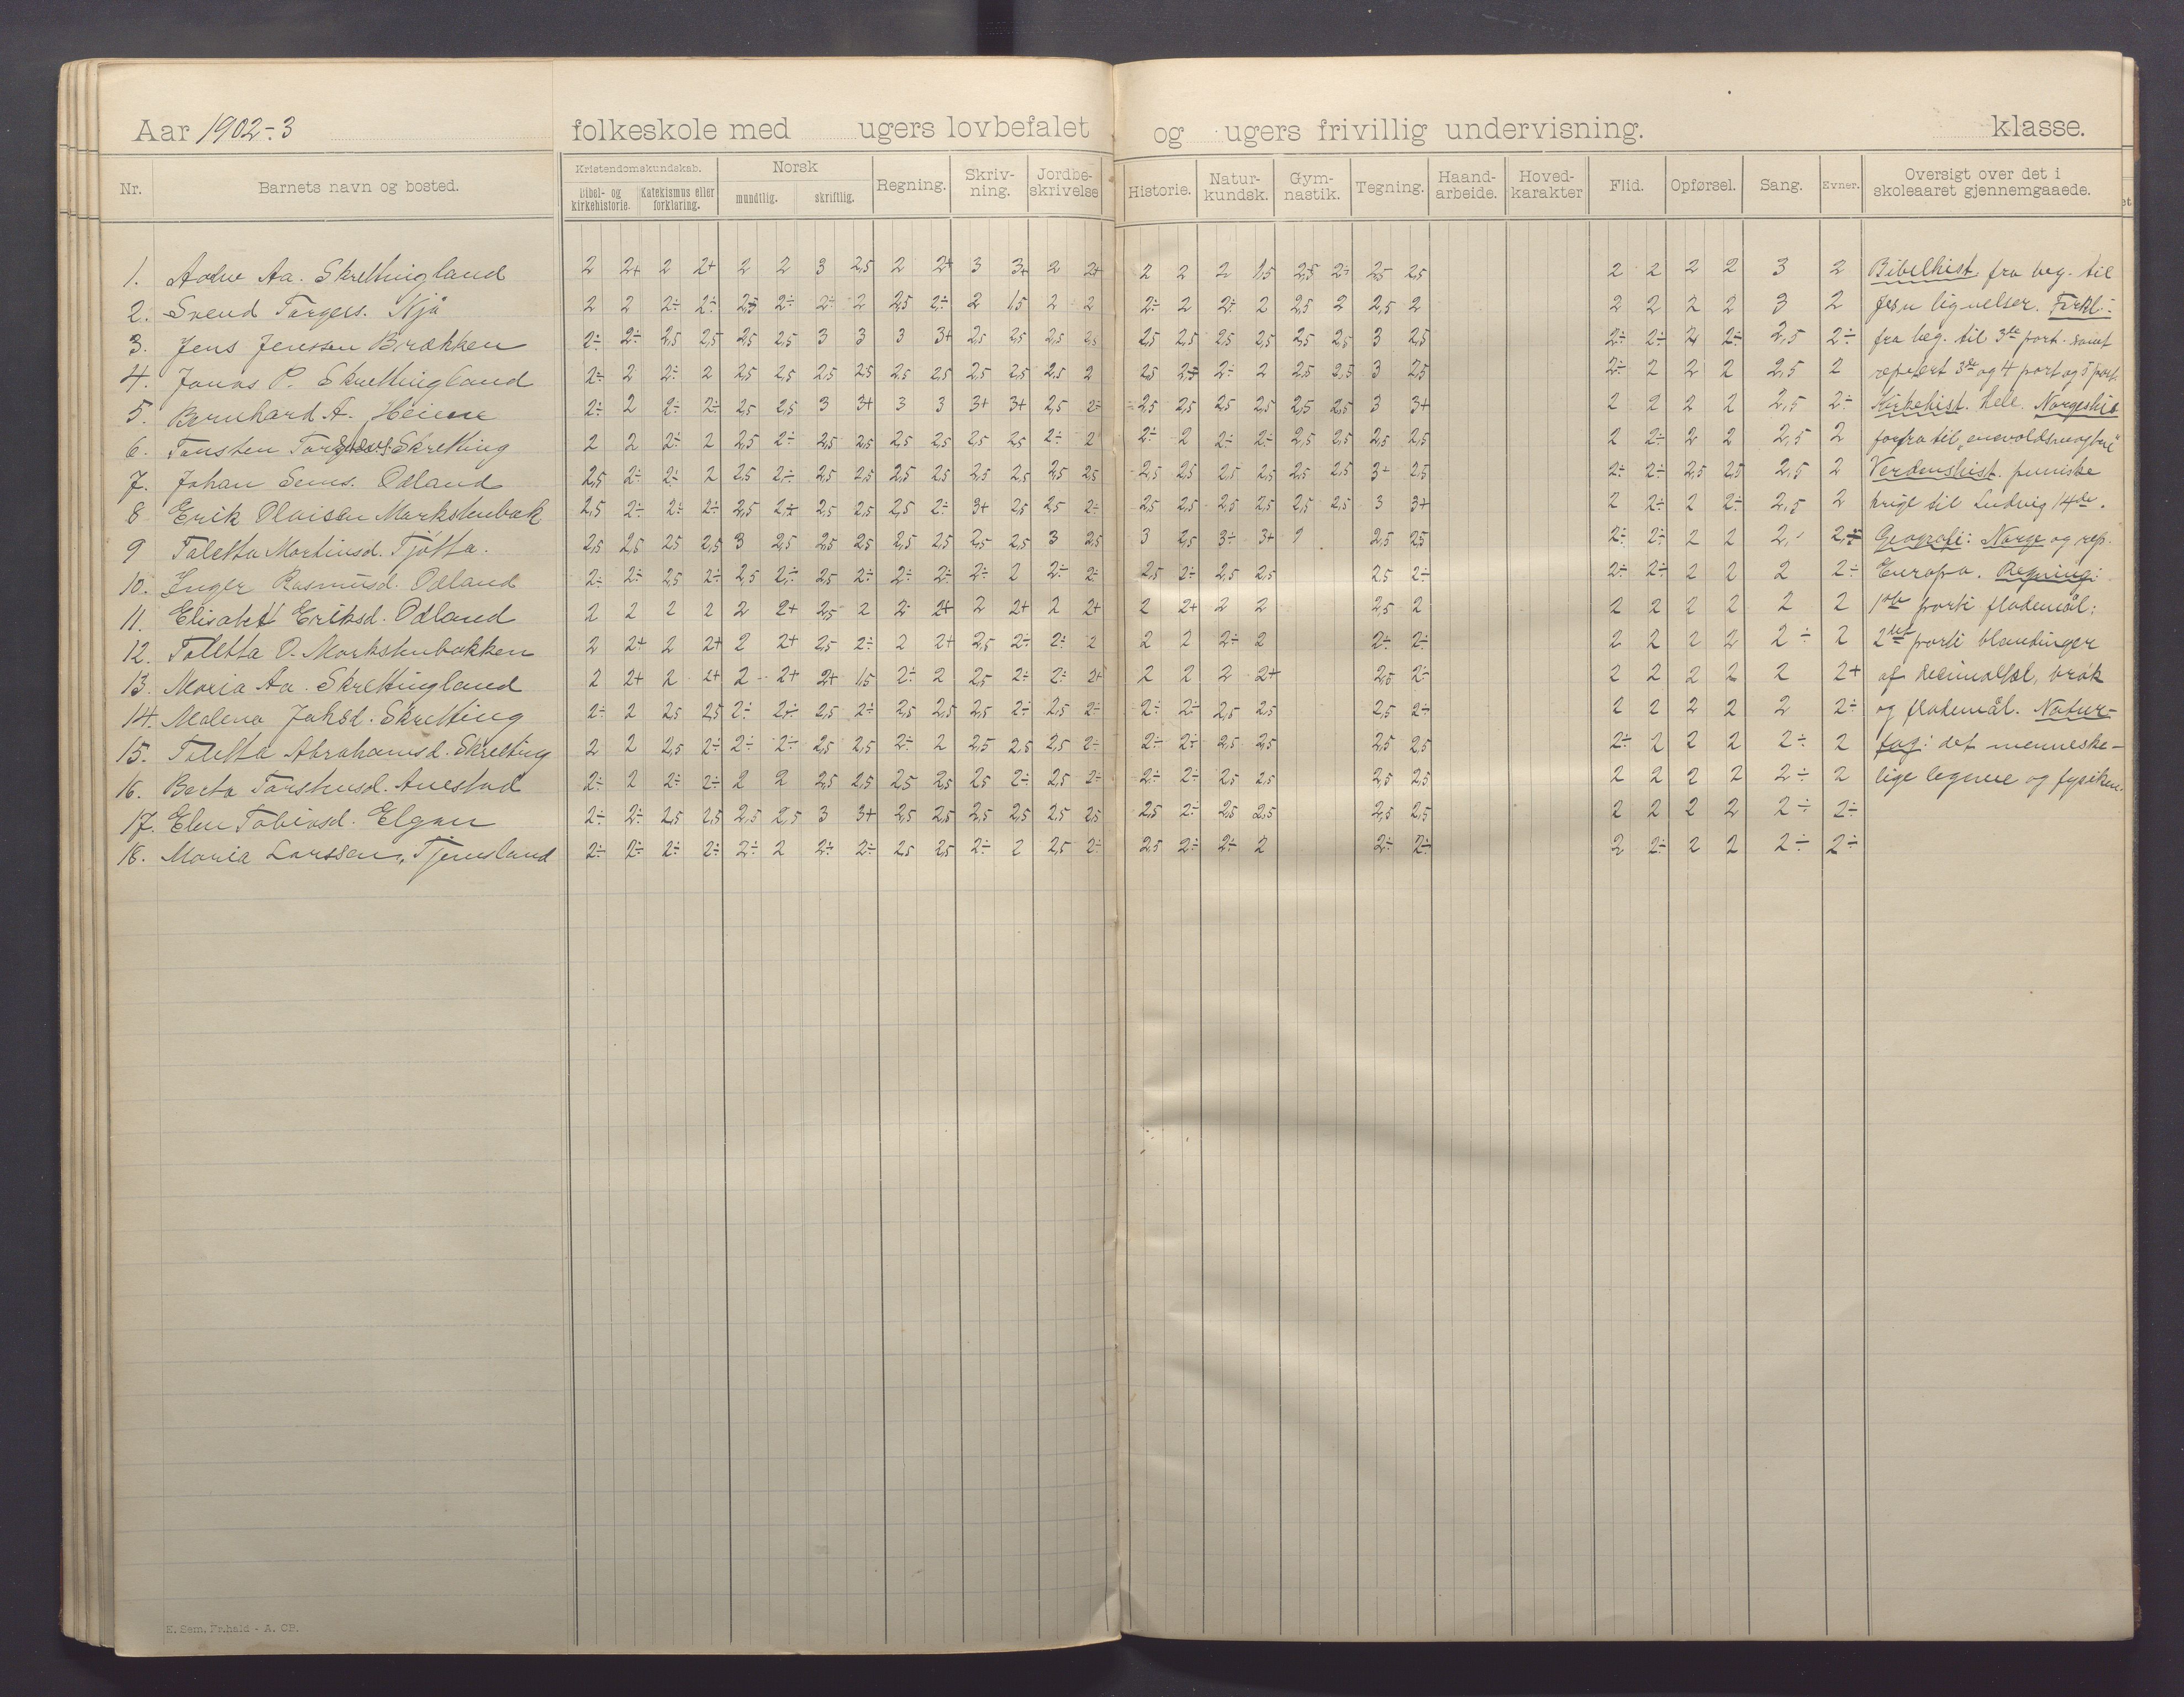 Aar 1902-3 folkeskole med ugers lovbefalet og ugers frivillig undervisning. klasse.
Nr. Barnets navn og bosted. Kristendomskundskab. Bibel- og kirkehistorie. Katekismus eller forklaring. Norsk mundtlig. skriftlig. Regning. Skriv-ning. Jordbe-skrivelse Historie. Natur-kundsk. Gym-nastik. Tegning. Haand-arbeide. Hoved-karakter Flid. Opførsel. Sang. Evner. Oversigt over det i skoleaaret gjennemgaaede.
1. Aa. Skrettingland 2 2+ 2 2+ 2 2 3 2,5 2 2+ 3 3+ 2 2+ 2 2 2 1,5 2,5 2÷ 2,5 2,5 2 2 2 2 3 2 Bibelhist. fra beg. til
2. Svend Torgers. Njå 2 2 2÷ 2÷ 2,5 2÷ 2÷ 2 2,5 2÷ 2 1,5 2 2 2÷ 2 2÷ 2 2,5 2 2,5 2 2 2 2 2 3 2 Jesu lignelser. Forkl.:
3. Jens Jenssen Brækken 2÷ 2÷ 2,5 2,5 2,5 2,5 3 3 3 3+ 2,5 2,5 2,5 2,5 2,5 2,5 2,5 2,5 2,5 2,5 3 2,5 2÷ 2÷ 2 2÷ 2,5 2÷ fra beg. til 3die part. samt
4. Jonas P. Skrettingland 2÷ 2 2÷ 2 2,5 2,5 2,5 2,5 2,5 2,5 2,5 2,5 2,5 2 2,5 2,5 2÷ 2 2,5 2,5 3 2,5 2÷ 2 2 2 2,5 2 repetert 3die og 4 part og 5 part.
5. Bernhard A. Heiene 2÷ 2 2÷ 2÷ 2,5 2,5 3 3+ 3 3 3+ 3+ 2,5 2÷ 2,5 2,5 2,5 2,5 2,5 2,5 3 3+ 2 2 2 2 2,5 2÷ Kirkehist. hele. Norgeshis
6. Skretting 2 2 2÷ 2 2,5 2÷ 2,5 2,5 2,5 2,5 2,5 2,5 2÷ 2 2÷ 2 2÷ 2÷ 2,5 2,5 2,5 2,5 2 2÷ 2 2 2,5 2 forfra til
7. Johan Sems. Odland 2,5 2÷ 2÷ 2 2,5 2÷ 2,5 2,5 2,5 2,5 2,5 2,5 2,5 2,5 2,5 2,5 2,5 2,5 2,5 2,5 3+ 2,5 2÷ 2÷ 2,5 2,5 2,5 2 Verdenshist. puniske
8 Erik Olaisen Markstenbak 2,5 2÷ 2÷ 2÷ 2,5 2÷ 2,5 2,5 2,5 2÷ 3+ 2,5 2,5 2÷ 2,5 2,5 2,5 2,5 2,5 2,5 3 3+ 2 2÷ 2 2÷ 2,5 2 krige til Ludvig 14de.
9 Taletta Martinsd. Tjøtta. 2,5 2,5 2,5 2,5 3 2,5 2,5 2,5 2,5 2,5 2,5 2,5 3 2,5 3 2,5 3÷ 3+ 2,5 2,5 2÷ 2÷ 2 2 Geografi: Norge og rep.
10. Inger Rasmusd. Odland 2÷ 2÷ 2,5 2÷ 2,5 2÷ 2,5 2÷ 2÷ 2÷ 2÷ 2 2÷ 2÷ 2,5 2÷ 2,5 2,5 2,5 2÷ 2÷ 2÷ 2 2 2 2÷ Europa. Regning:
11. Elisabet Eriksd. Odland 2 2 2 2 2 2+ 2,5 2 2 2+ 2 2+ 2 2+ 2 2+ 2 2 2,5 2 2 2 2 2 2 2 1ste parti flademål;
12. Taletta O. Markstenbakken 2 2+ 2 2+ 2 2+ 2,5 2÷ 2 2+ 2,5 2÷ 2÷ 2 2 2 2÷ 2 2÷ 2÷ 2 2 2 2 2÷ 2 2det parti blandinger
13. Maria Aa. Skrettingland 2 2+ 2 2+ 2 2+ 2+ 1,5 2÷ 2 2,5 2÷ 2÷ 2+ 2 2 2 2+ 2,5 2÷ 2 2 2 2 2 2+ af decimaltal, brøk
14. Malena Jaksd. Skretting 2÷ 2 2,5 2,5 2÷ 2÷ 2,5 2÷ 2,5 2,5 2,5 2÷ 2,5 2÷ 2÷ 2÷ 2,5 2,5 2,5 2÷ 2 2 2 2 2 2÷ og flademål. Natur-
15. Taletta Abrahamsd. Skretting 2 2 2,5 2÷ 2÷ 2÷ 2,5 2,5 2÷ 2 2,5 2,5 2,5 2÷ 2÷ 2÷ 2,5 2,5 2,5 2,5 2÷ 2 2 2 2÷ 2 fag: det menneske-
16. Berta Torstensd. Auestad 2÷ 2 2÷ 2÷ 2 2 2,5 2,5 2,5 2,5 2,5 2÷ 2,5 2÷ 2÷ 2÷ 2,5 2,5 2,5 2,5 2 2 2 2 2÷ 2 lige legeme og fysiken.
17. Elen Tobiasd. Elgan 2÷ 2÷ 2,5 2,5 2,5 2,5 3 3+ 2,5 2,5 2,5 2,5 2,5 2,5 2,5 2÷ 2,5 2,5 2,5 2,5 2 2 2 2 2÷ 2÷
18. Maria Larssen, Tjemsland 2÷ 2÷ 2÷ 2÷ 2÷ 2 2÷ 2÷ 2,5 2,5 2÷ 2 2,5 2÷ 2,5 2÷ 2÷ 2 2÷ 2÷ 2 2÷ 2 2 2÷ 2÷
E. Sem, Fr.hald - A. CB.